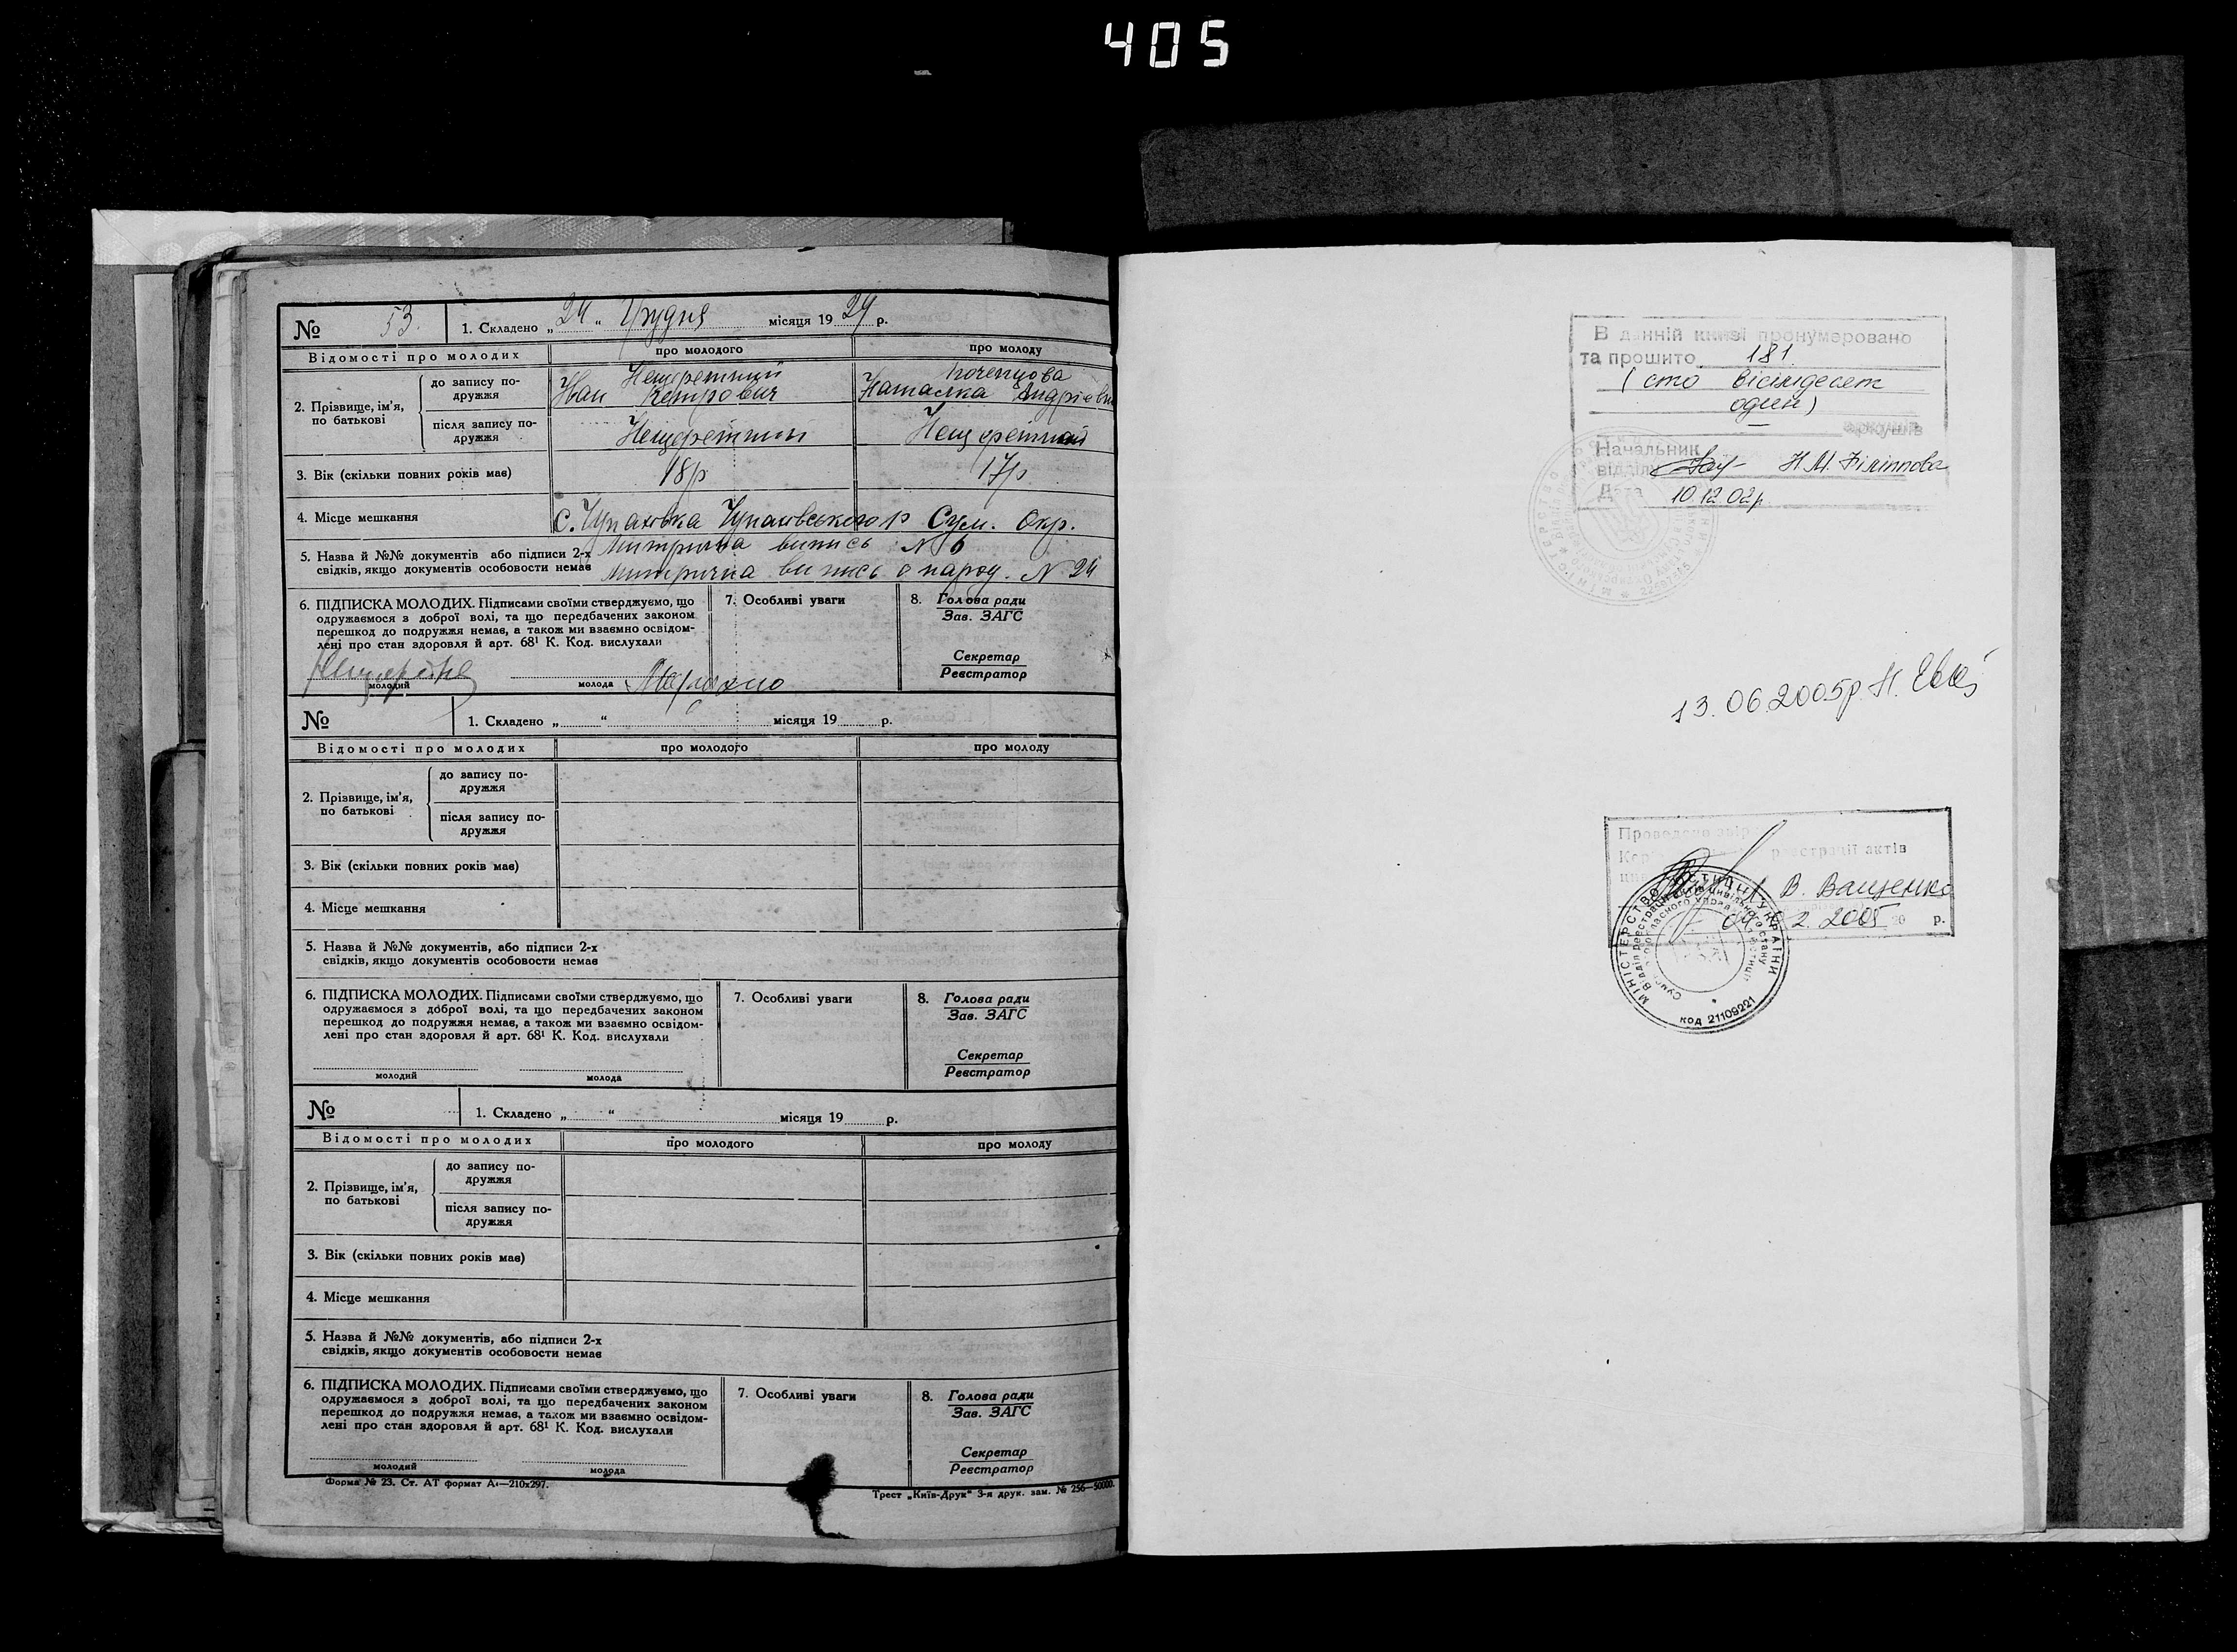 405
№ 53. 1. Складено „ 24 “ Грудня місяця 19 29 р.
Відомості про молодих про молодого про молоду
2. Прізвище, ім’я, по батькові
до запису подружжя
Нещеретний Почепцова
Иван Петрович Наталка Андріевна
після запису подружжя
Нещеретний Нещеретний
3. Вік (скільки повних років має) 18р 17р
4. Місце мешкання с. Чупаховка Чупаховського р Сум. Окр.
5. Назва й №№ документів або підписи 2-х Митрична випись № 6
свідків, якщо документів особовости немає митрична випись о народ. № 24
6. ПІДПИСКА МОЛОДИХ. Підписами своїми стверджуємо, що
одружаємося з доброї волі, та що передбачених законом
перешкод до подружжя немає, а також ми взаємно освідом-
лені про стан здоровля й арт. 68¹ К. Код. вислухали
молодий молода
7. Особливі уваги
8. Голова ради
Зав. ЗАГС
Секретар
Реєстратор
№ 1. Складено „ “ місяця 19 р.
Відомості про молодих про молодого про молоду
2. Прізвище, ім’я,
по батькові
до запису по-
дружжя
після запису по-
дружжя
3. Вік (скільки повних років має)
4. Місце мешкання
5. Назва й №№ документів, або підписи 2-х
свідків, якщо документів особовости немає
6. ПІДПИСКА МОЛОДИХ. Підписами своїми стверджуємо, що
одружаємося з доброї волі, та що передбачених законом
перешкод до подружжя немає, а також ми взаємно освідом-
лені про стан здоровля й арт. 68¹ К. Код. вислухали
молодий молода
7. Особливі уваги
8. Голова ради
Зав. ЗАГС
Секретар
Реєстратор
№ 1. Складено „ “ місяця 19 р.
Відомості про молодих про молодого про молоду
2. Прізвище, ім’я,
по батькові
до запису по-
дружжя
після запису по-
дружжя
3. Вік (скільки повних років має)
4. Місце мешкання
5. Назва й №№ документів, або підписи 2-х
свідків, якщо документів особовости немає
6. ПІДПИСКА МОЛОДИХ. Підписами своїми стверджуємо, що
одружаємося з доброї волі, та що передбачених законом
перешкод до подружжя немає, а також ми взаємно освідом-
лені про стан здоровля й арт. 68¹ К. Код. вислухали
молодий молода
7. Особливі уваги
8. Голова ради
Зав. ЗАГС
Секретар
Реєстратор
Форма № 23. Ст. АТ формат А₄—210x297.
Трест „Київ-Друк“ 3-я друк. зам. № 256—50000.
В данній книзі пронумеровано
та прошито 181.
(сто вісімдесят
один)
аркушів
Начальник
відділу Н.М. Філіппова
Дата 10.12.02р.
13.06.2005р. Н.
Проведено звір
реєстрації актів
В. Ващенко
2. 2005 20 р.
МІНІСТЕРСТВО ЮСТИЦІЇ УКРАЇНИ
код 21109221